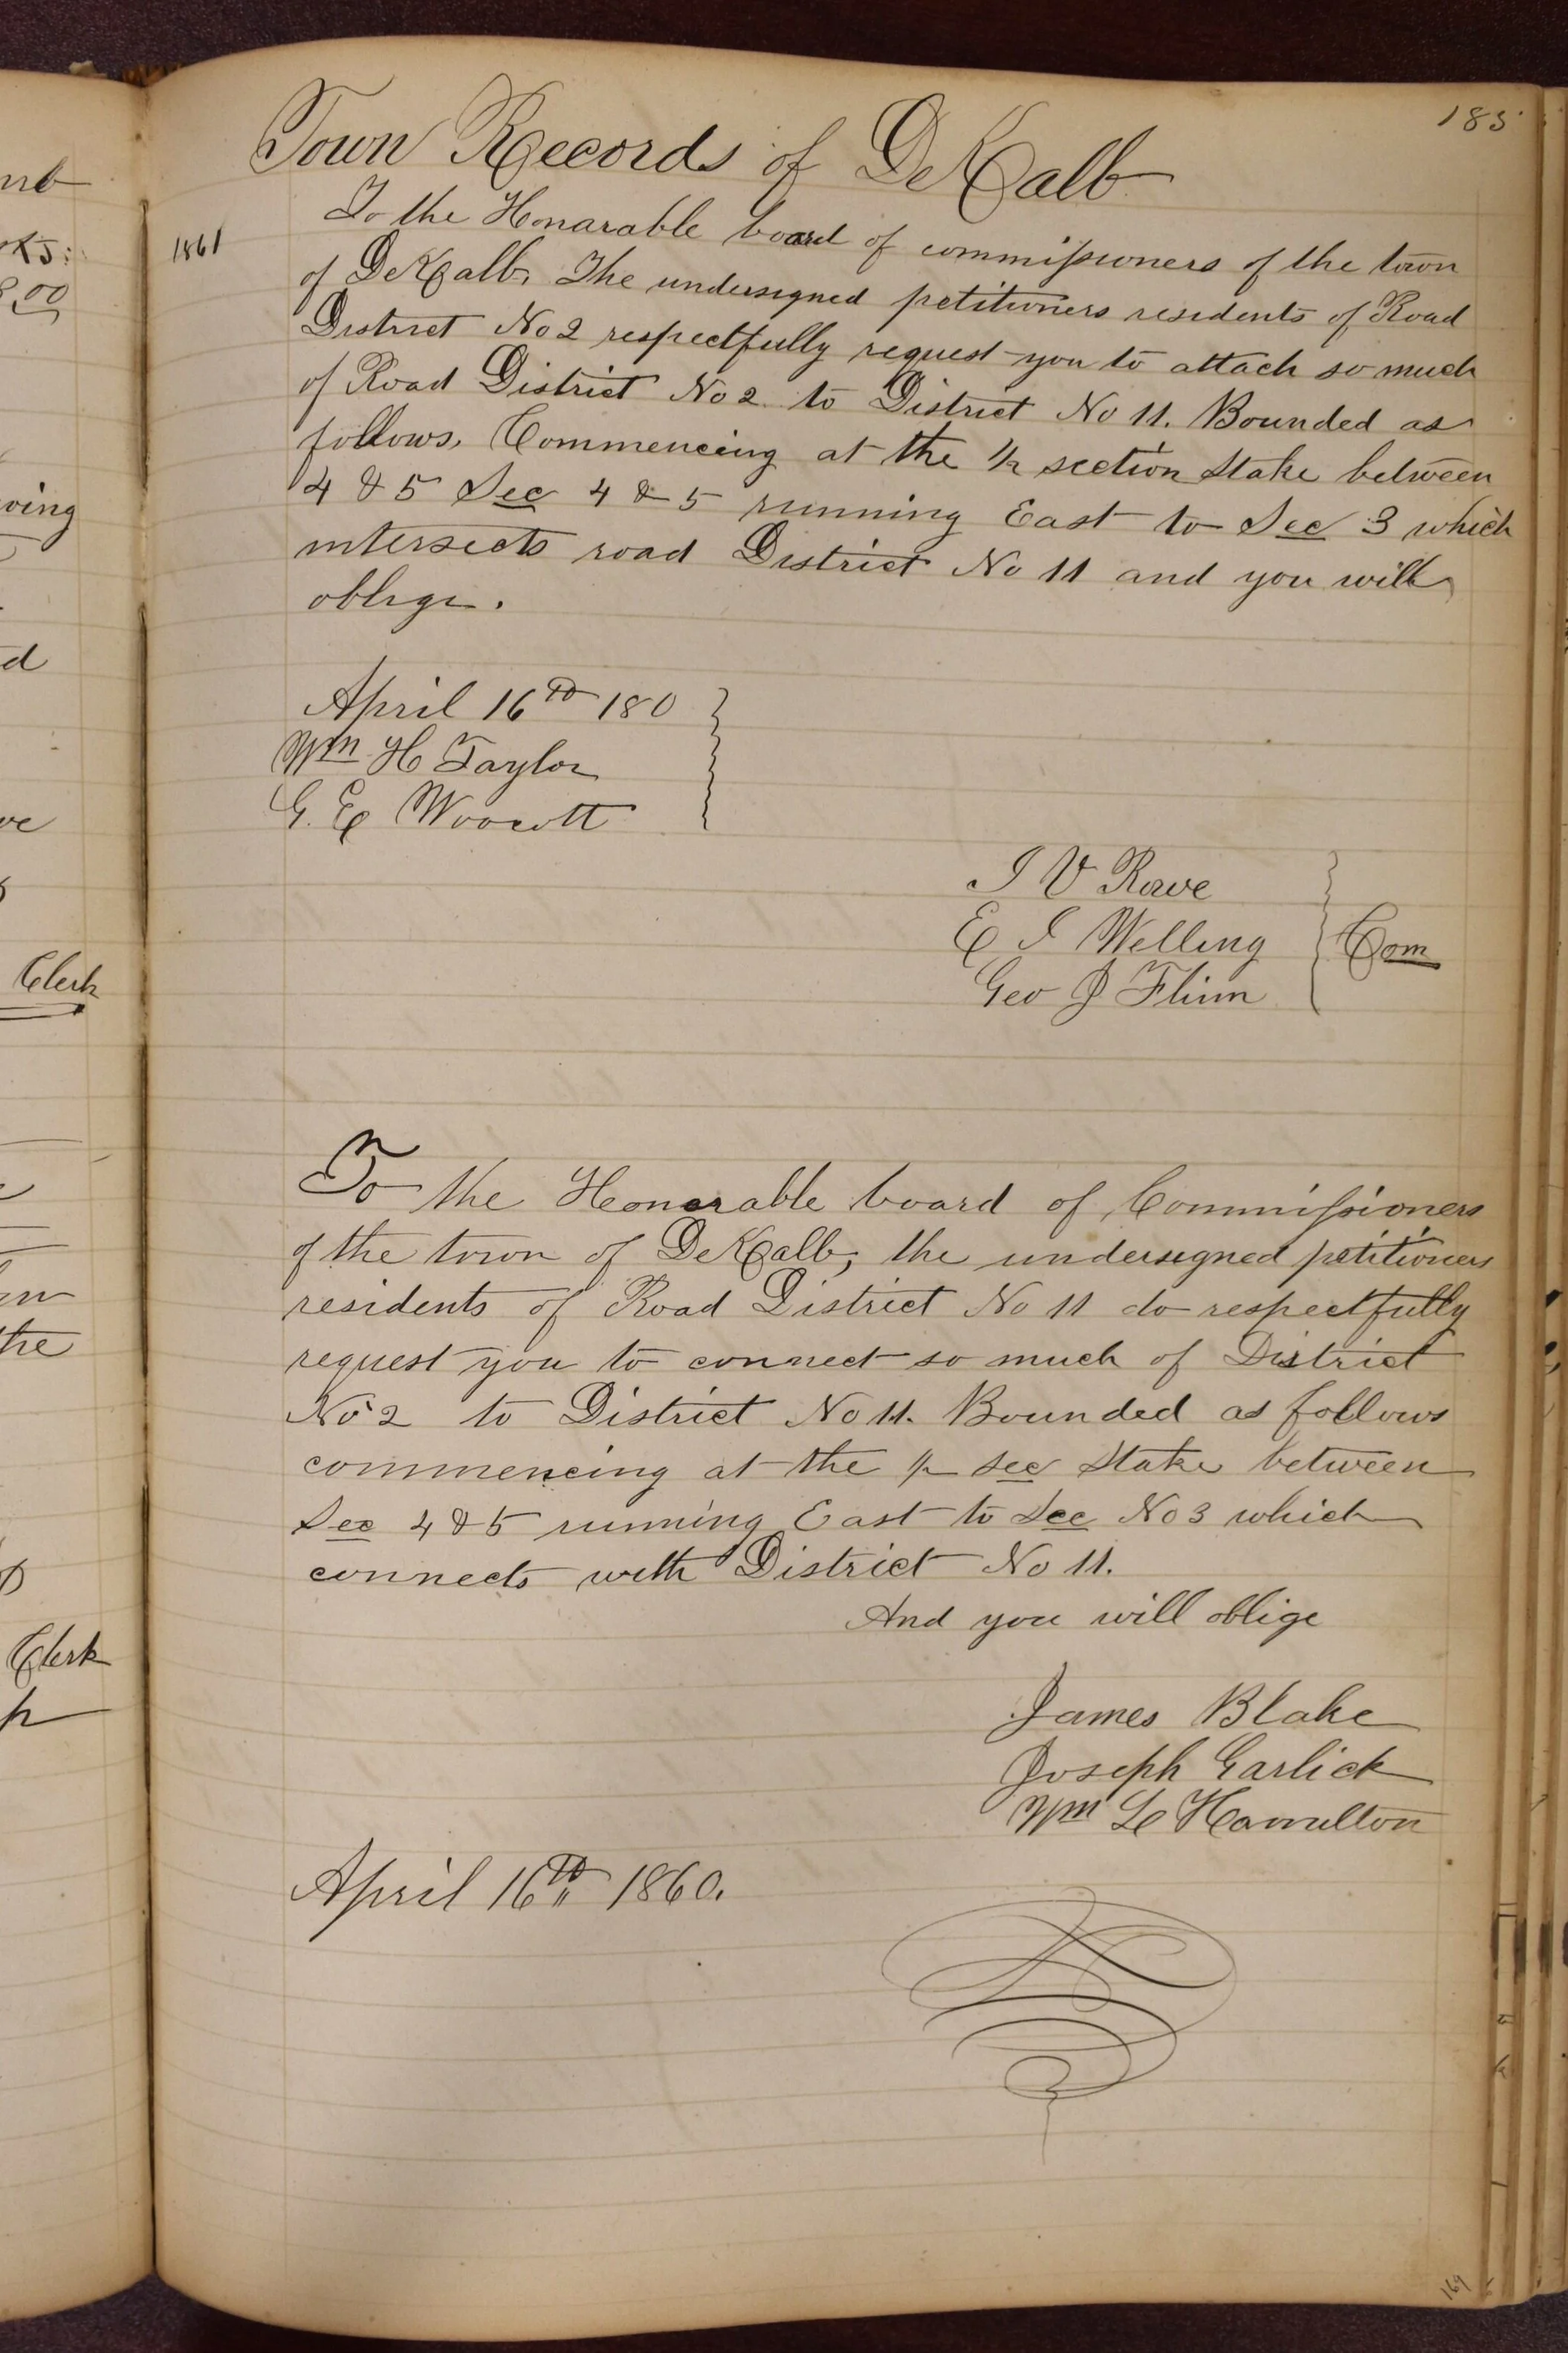 185
Town Records of DeKalb
1861
To the Honarable board of commissioners of the town
of DeKalb, The undersigned petitioners residents of Road
District No 2 respectfully request you to attach so much
of Road District No 2 to District No 11. Bounded as
follows, Commencing at the 1/2 section Stake between
4 & 5 Sec 4 & 5 running East to Sec 3 which
intersects road District No 11 and you will
oblige.
April 16th 180
Wm H Taylor
G. E
I V Rowe
E I Welling
Com
Geo J Flinn
To the Honorable board of Commissioners
of the town of DeKalb, the undersigned petitioners
residents of Road District No 11 do respectfully
request you to connect so much of District
No 2 to District No 11. Bounded as follows
commencing at the 1/2 sec Stake between
Sec 4 & 5 running East to Sec No 3 which
connects with District No 11.
And you will oblige
James Blake
Joseph Garlick
Wm Le Hamilton
April 16th 1860.
169
Clerk
Clerk